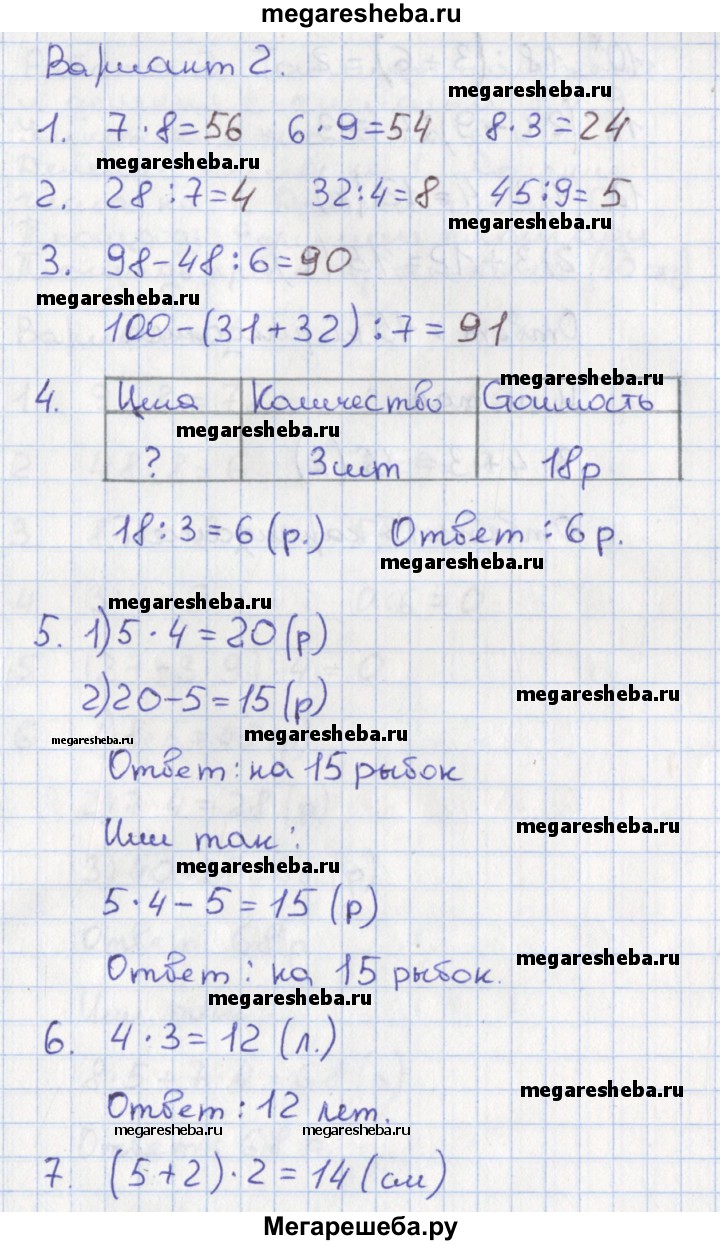 megaresheba.ru
Вариант 2.
megaresheba.ru
1. 7·8=56 6·9=54 8·3=24
megaresheba.ru
2. 28:7=4 32:4=8 45:9=5
megaresheba.ru
3. 98-48:6=90
megaresheba.ru
100-(31+32):7=91
megaresheba.ru
4. Цена Количество Стоимость
megaresheba.ru
? 3шт 18р
18:3=6(р.) Ответ: 6р.
megaresheba.ru
megaresheba.ru
5. 1)5·4=20(р)
2)20-5=15(р)
megaresheba.ru
megaresheba.ru megaresheba.ru
Ответ: на 15 рыбок
Или так:
megaresheba.ru
megaresheba.ru
5·4-5=15 (р)
Ответ: на 15 рыбок.
megaresheba.ru
megaresheba.ru
6. 4·3=12 (л.)
megaresheba.ru
Ответ: 12 лет.
megaresheba.ru megaresheba.ru
7. (5+2)·2=14(см)
Мегарешеба.ру